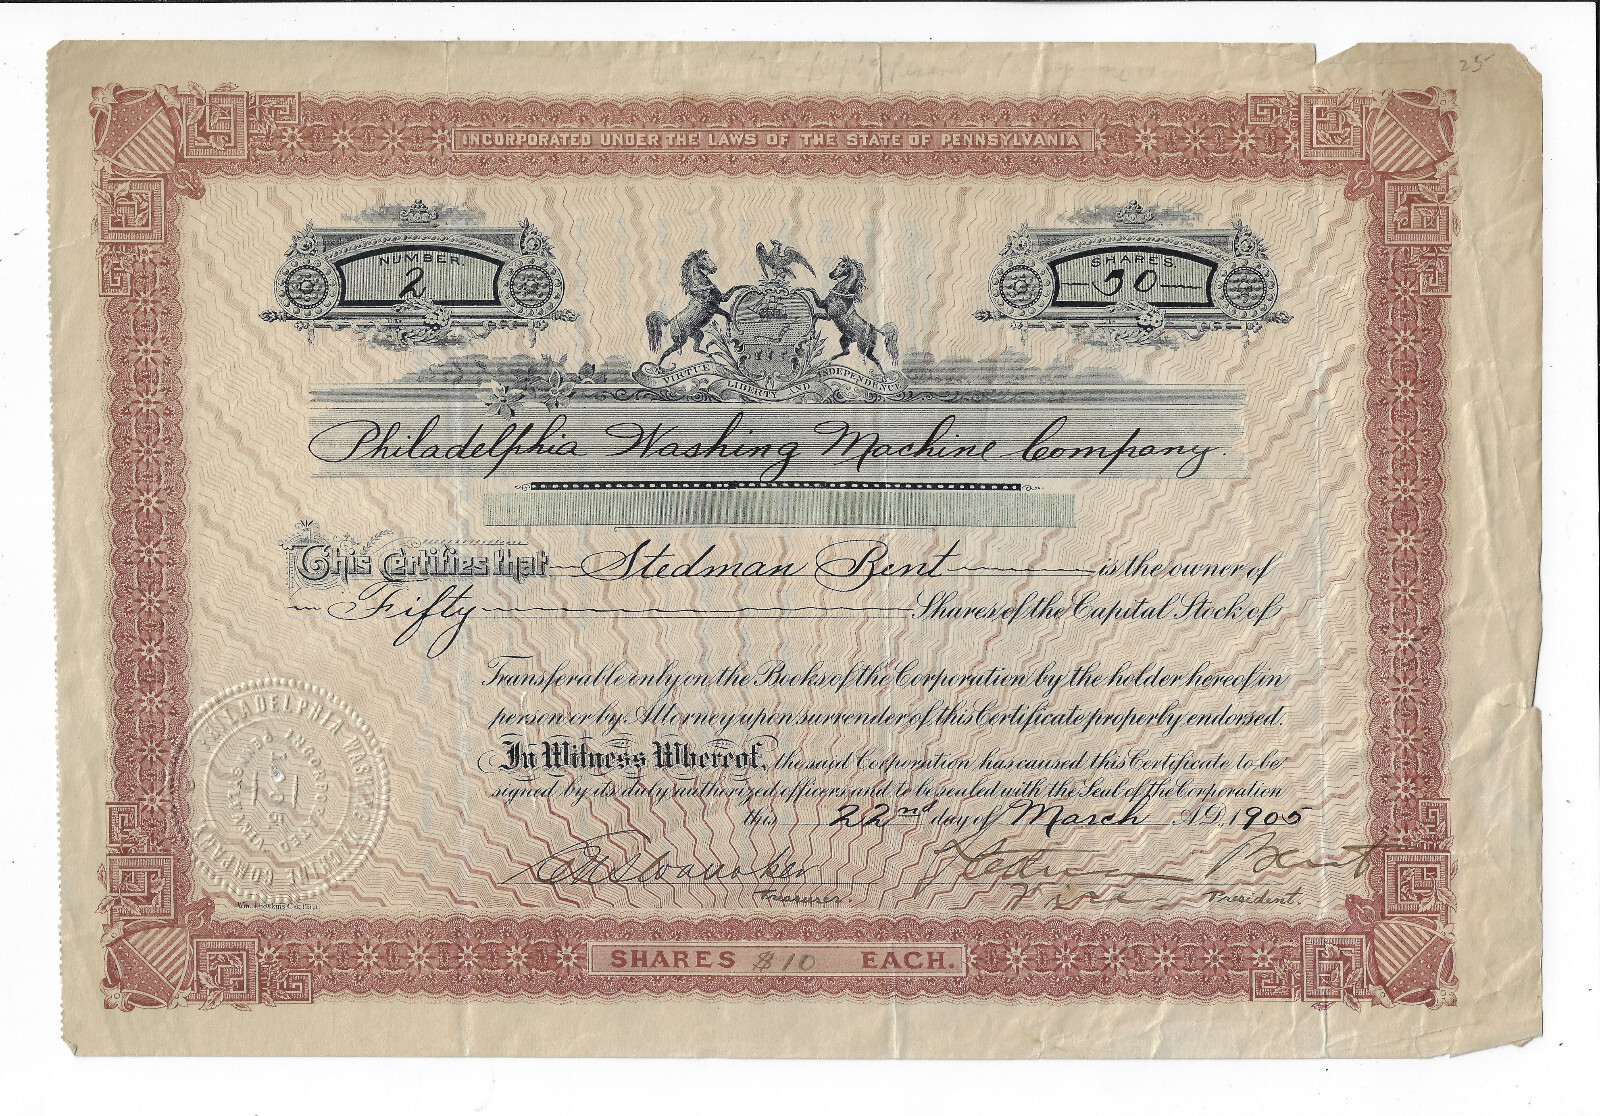 25
INCORPORATED UNDER THE LAWS OF THE STATE OF PENNSYLVANIA
NUMBER.
2
SHARES.
50
VIRTUE LIBERTY AND INDEPENDENCE
Philadelphia Washing Machine Company.
This Certifies that Stedman Bent is the owner of
Fifty Shares of the Capital Stock of
Transferable only on the Books of the Corporation by the holder hereof in
person or by Attorney upon surrender of this Certificate properly endorsed.
In Witness Whereof, the said Corporation has caused this Certificate to be
signed by its duly authorized officers and to be sealed with the Seal of the Corporation
this 22nd day of March A.D. 1905
Stedman Bent
Treasurer.
Vice President.
PHILADELPHIA WASHING MACHINE COMPANY
INCORPORATED
PENNSYLVANIA
SHARES $10 EACH.